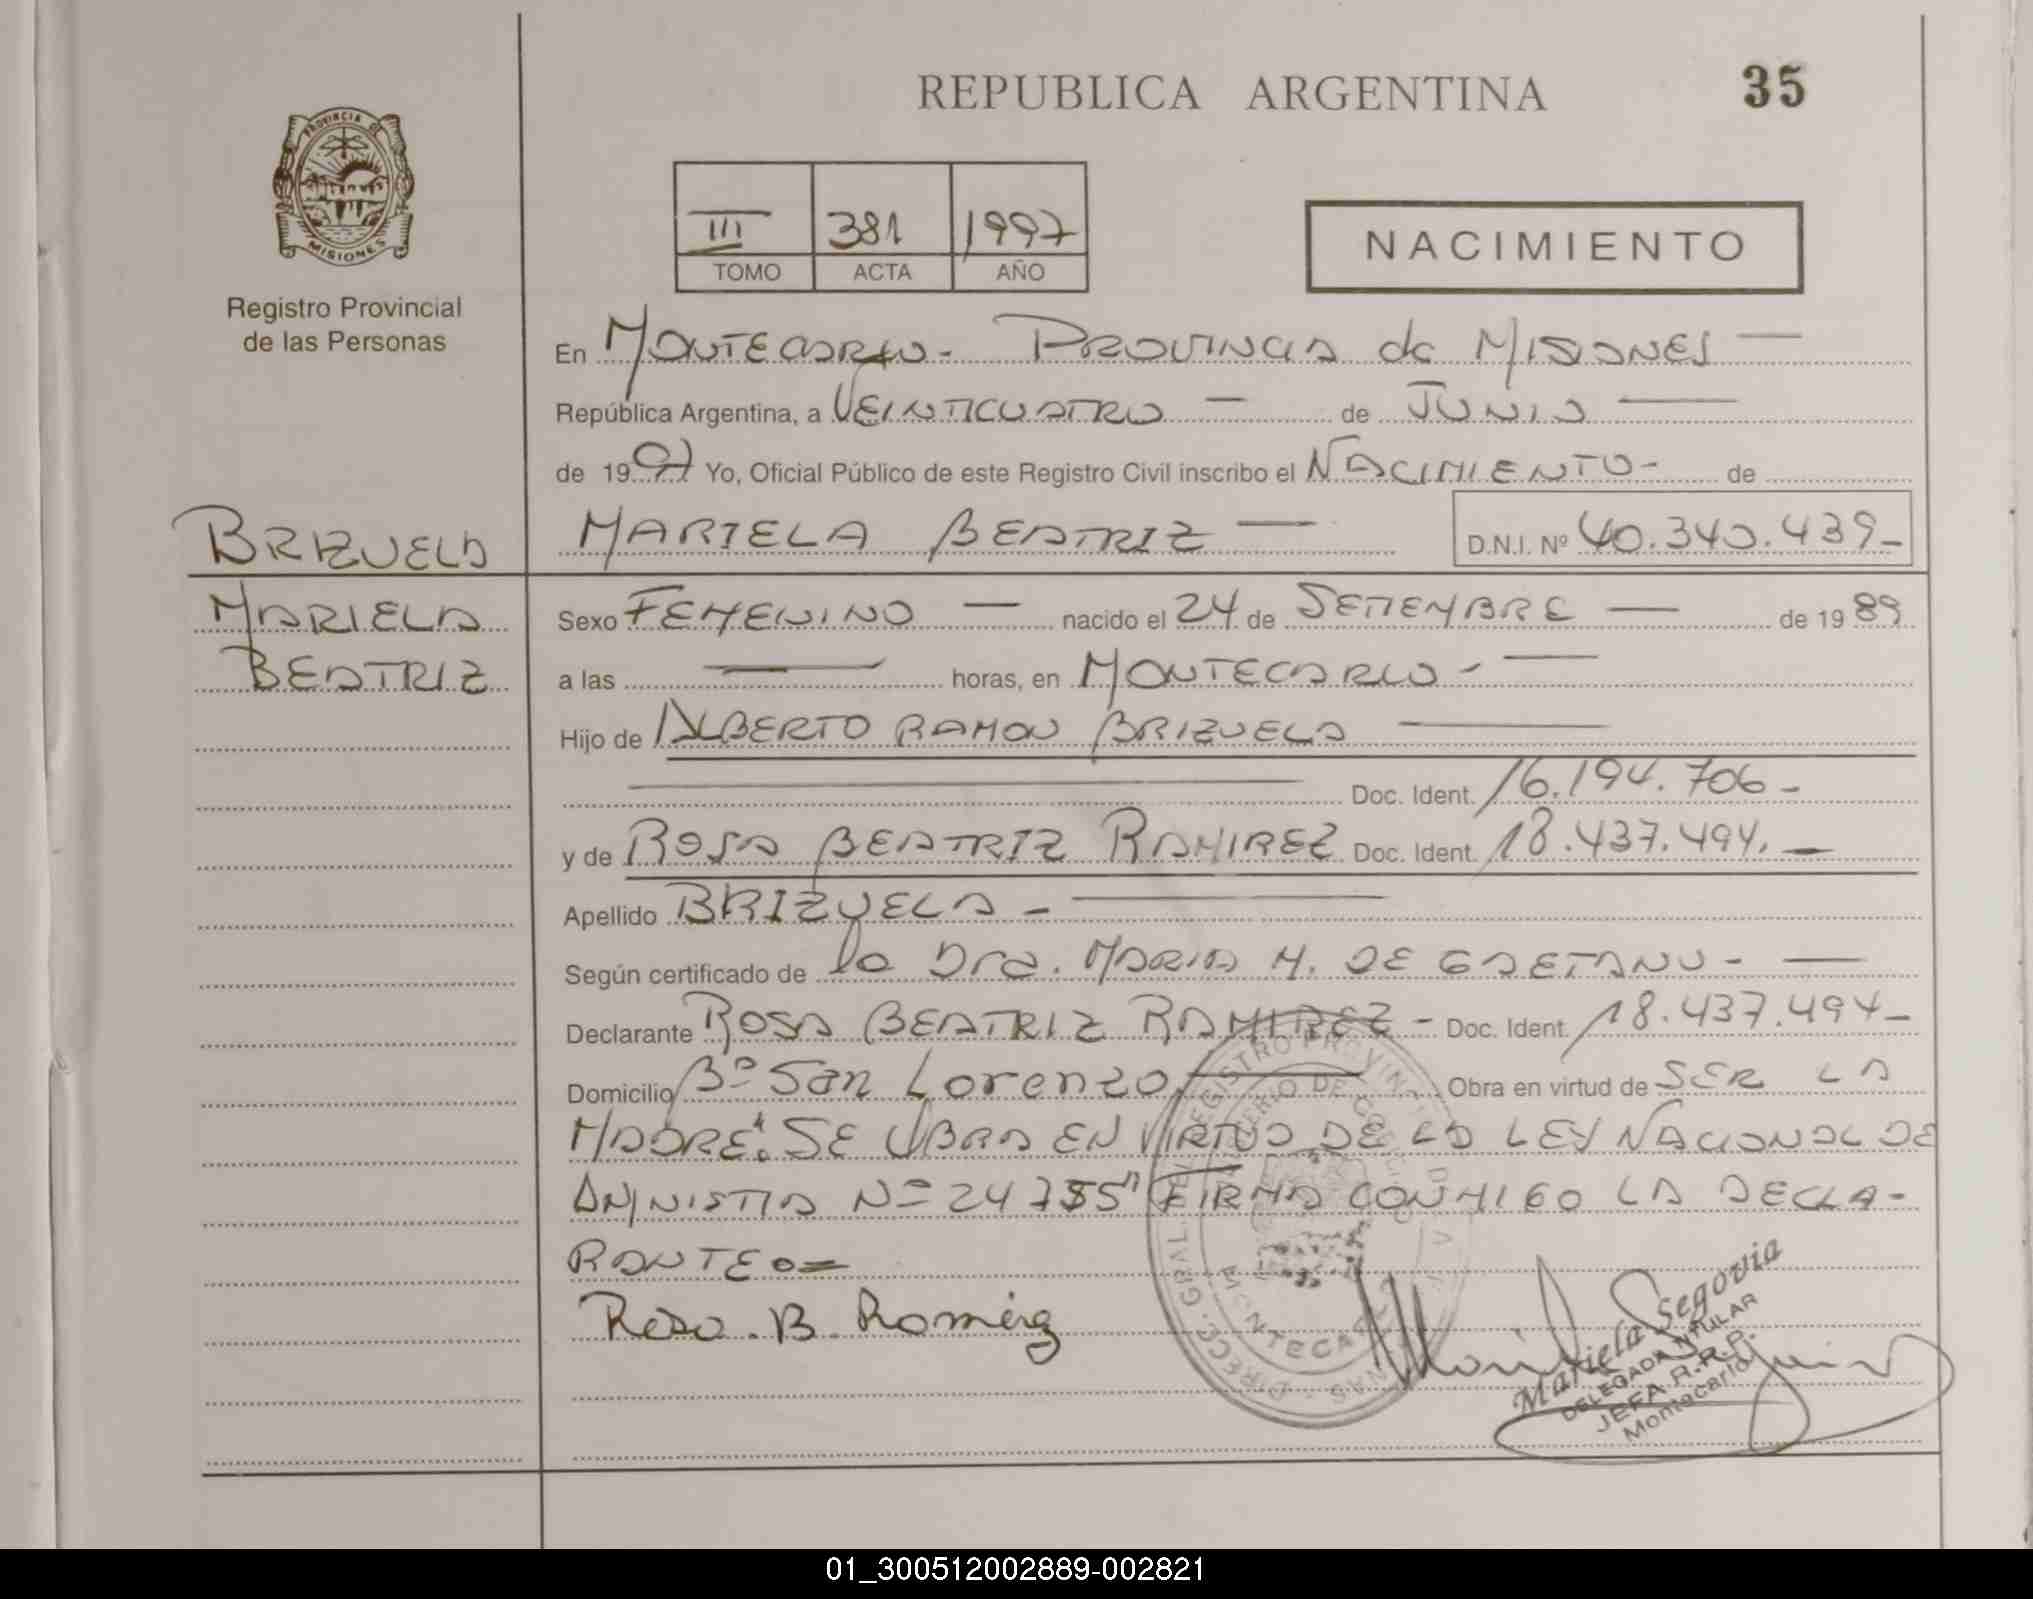 REPUBLICA ARGENTINA
35
PROVINCIA DE
MISIONES
Registro Provincial
de las Personas
III 381 1997
TOMO ACTA AÑO
NACIMIENTO
En MONTECARLO- PROVINCIA de MISIONES —
República Argentina, a VEINTICUATRO — de JUNIO —
de 1997 Yo, Oficial Público de este Registro Civil inscribo el NACIMIENTO- de
BRIZUELA
MARIELA BEATRIZ — D.N.I. Nº 40.340.439-
MARIELA
BEATRIZ
Sexo FEMENINO — nacido el 24 de SETIEMBRE — de 1989
a las — horas, en MONTECARLO - —
Hijo de ALBERTO RAMON BRIZUELA —
— Doc. Ident. 16.194.706-
y de ROSA BEATRIZ RAMIREZ Doc. Ident. 18.437.494. —
Apellido BRIZUELA - —
Según certificado de la Dra. MARIA M. DE GAETANO - —
Declarante ROSA BEATRIZ RAMIREZ - Doc. Ident. 18.437.494-
Domicilio Bº San Lorenzo. — Obra en virtud de SER LA
MADRE". SE OBRA EN VIRTUD DE LA LEY NACIONAL DE
AMNISTIA Nº 24755" FIRMA CONMIGO LA DECLA-
RANTE.=
Rosa. B. Ramirez
Mariela Segovia
DELEGADA TITULAR
JEFA R.R.P.
Montecarlo
01_300512002889-002821